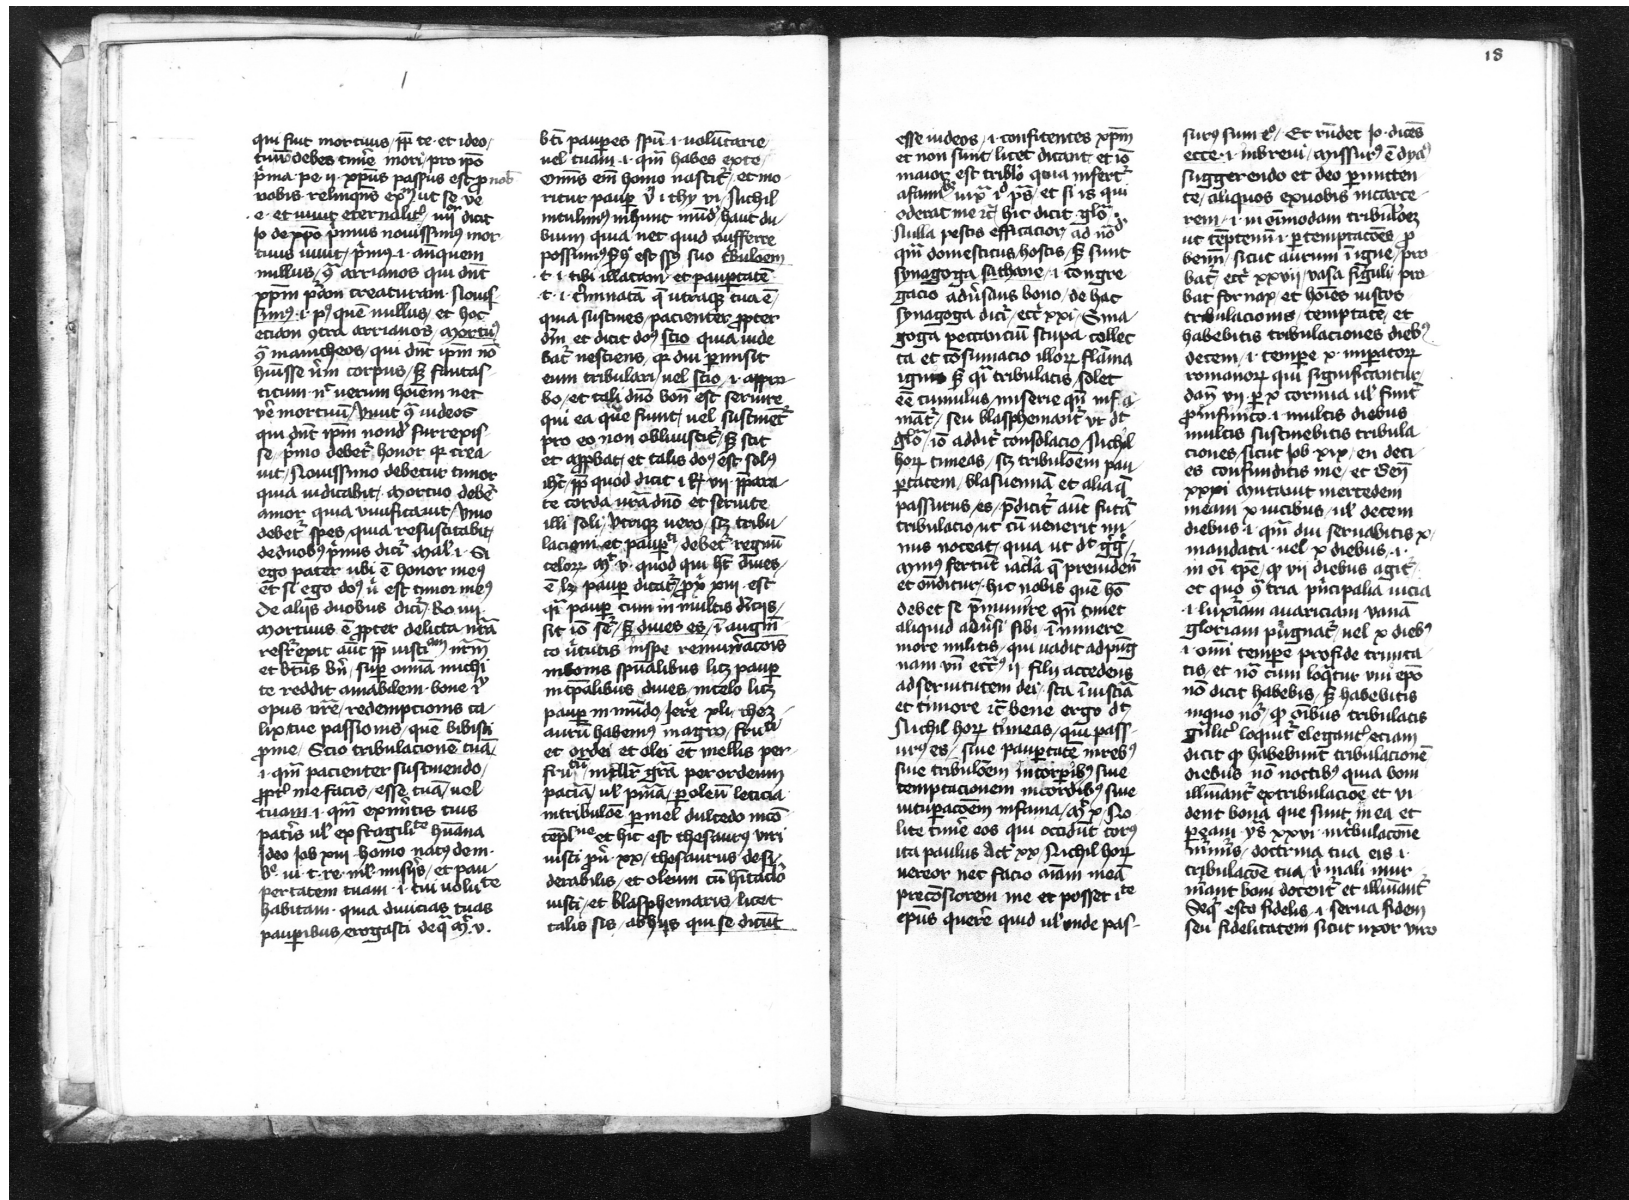 qui fuit mortuus, ꝓpt̄ te et ideo
tuū debes timē mori pro ipō
p̄ma pe ii xp̄us passus est pro nob
vobis relinqn̄s exm̄ ut se ve
e et viuit eternalit̄
Io de xp̄o p̄mus nouissimus mor
tuus viuit, p̄mus i antequem
nullus, ꝯ arrianos qui dn̄t
xp̄m p̄am creaturam Nouis
simus i pꝰ quē nullus, et hoc
etiam ꝯtra arrianos, mortuꝰ
ꝯ manicheos, qui dn̄t ip̄m nō
huisse v̄m corpus, sꝫ fantas
ticum nꝰ verum hoiem nec
v̄e mortuū, viuit ꝯ iudeos
qui dn̄t ip̄m nond̄ surrexis
se, p̄mo debet̄ honor qꝛ crea
uit, Nouissimo debetur timor
quia iudicabit, mortuo debet̄
amor quia viuificauit, viuo
debet̄ spes, quia resuscitabit,
de duobꝰ p̄mus dicit̄ mal̄ i Si
ego pater ubi ē honor meꝰ
et si ego dn̄s ubi est timor meꝰ
De alijs duobus dicit̄ Ro iiii
mortuus ē ꝓpter delicta nr̄a
resr̄exit aut̄ ꝓpt̄ iusticiam nr̄m
et btūs bn̄, sup̄ omnia michi
te reddit amabilem bone ih̄u
opus nr̄e redempcionis ca
lix tue passionis, quē bibisti
ꝓ me, Scio tribulacionē tuā,
i qm̄ pacienter sustinendo,
ꝓpt̄ me facis, esse tuā, vel
tuam i qm̄ ex meritis tuis
patris ul̄ ex fragilitate hūana
Ideo Iob xiiii homo natus de m
et pau
pertatem tuam i tui volūte
habitam quia diuicias tuas
paup̄ibus, erogasti de q̄ m̄t v
bt̄i paup̄es sp̄u i volūtarie
vel tuam i qm̄ habes ex te,
Omnis em̄ homo nascit̄, et mo
ritur paup̄ i thy vi, Nichil
intulimus in hunc mūdum haut du
bium quia nec quid aufferre
possumus tribuloēm
t i tibi illatam et paup̄tatē
t i c̄minatā q̄ utraqꝫ tua ē
quia sustines, pacienter ꝓpter
dm̄, et dicit dn̄s scio quia iude
bat̄ nesciens, qꝛ diu p̄misit
eum tribulari, vel scio, i appro
bo, et tali dn̄o bonū est seruire
qui ea que fiunt, vel sustinet̄
pro eo non obliuiscit̄, sꝫ scit
et approbat, et talis dn̄s est solus
ih̄c, ꝓpt̄ quod dicit i R vii p̄para
te corda vr̄a dn̄o et seruite
illi soli, Vtriqꝫ vero, scꝫ tribu
lacioni et paup̄ti, debet̄ regnū
celorꝝ m̄t v quod qui hꝫ diues
ē lꝫ paup̄ dicat̄, ꝓv̄ xiii est
q̄i paup̄ cum in multis diciis,
sit iō seꝰ, sꝫ diues es, ī augm̄
to v̄tutis, in spe remūracois
in bonis sp̄ualibus licꝫ paup̄
in tp̄alibus, diues, in celo licꝫ
paup̄ in mūdo, Ier̄e xli, thez
aurū habemus in agro, frumeti
et ordei et olei et mellis per
frumentū, gr̄a per ordeum
pacīa, ul̄ pn̄ia, p̄ oleū leticia
in tribuloē p̄ mel dulcedo in cō
templ̄ne et hic est thesaurus viri
iusti ꝓv̄ xx, thesaurus, desi
derabilis, et oleum cū hitaclo
iusti, et blasphemaris, licet
talis sis, ab hijs qui se dicūt
18
esse iudeos, i confitentes xp̄m
et non sunt, licet dicant, et iō
maior est tribl̄o quia infert̄
a familiaribꝫ et si is qui
oderat me ic̄ hic dicit glo
Nulla pestis efficacior ad nocd̄
q̄m domesticus hostis, sꝫ sunt
synagoga sathane, i congre
gacio aduersans bono, de hac
synagoga dicit̄, ecc̄i xxi Sina
goga peccancium stupa collec
ta et cōsumacio illorꝝ flāma
ignis sꝫ q̄i tribulatis, solet
eē cumulus, miserie qn̄ infa
mant̄, seu blasphemant̄ ut dt̄
glo, iō addit̄ consolacio Nichil
horꝝ timeas, scꝫ tribuloēm pau
p̄tatem, blasfemiā et alia q̄
passurus es, p̄dicit̄ aut̄ futu͛
tribulacio, ut cū venerit mi
nus noceat, quia ut dt̄ gg̅,
minꝰ feriut̄ iacl̄a q̄ preuident̄
et on̄ditur hic nobis quē hō
debet se p̄munire qn̄ timet
aliquid adu̅si sibi īminere
more militis, qui vadit ad pug
nam vn̄ ecc̄ꝰ ii fili accedens
ad seruitutem dei, sta ī iusticiā
et timore ic̄ bene ergo dt̄
Nichil horꝝ timeas, qui pass
urus es, siue paup̄tatē in rebꝰ
siue tribuloēm in corp̄ibꝰ siue
temptacionem in cordibꝰ siue
vitup̄acoēm in fama, m̄t x No
lite timē eos qui occidūt corꝰ
ita paulus Act̄ xx Nichil horꝝ
vereor nec facio aīam meā
preciosiorem me et posset ite
ep̄us querē quid ul̄ vnde pas
surus sum Et rn̄det Io dicēs
ecce i in breui, missurꝰ ē dyaꝰ
suggerendo et deo p̄mitten
te, aliquos ex vobis in carce
rem, i in eiusmodam tribulōeꝫ
ut temptemini i p̄ temptacoēs ꝓ
bemi, sicut aurum ī igne, pro
bat̄ ecc̄i xxvii, vasa figuli pro
bat fornax, et hoies iustos
tribulacionis, temptate, et
habebitis tribulaciones diebꝰ
decem, i tempe x imp̄atorꝝ
romanorꝝ qui significantur,
dan̄ vii p̄ x cornua ul̄ finit̄
ꝓ infinito i multis diebus
multis sustinebitis tribula
ciones, sicut Iob xix, en deci
es confunditis me, et Gen̄
xxxi mutauit mercedem
meam x vicibus, ul̄ decem
diebus i qm̄ diu seruabitis x
mandata vel x diebus i
in oī tp̄e, qꝛ vii diebus agit̄
et quo ꝯ tria p̄ncipalia vicia
i luxuriam auariciam vanā
gloriam pugnat̄, vel x diebꝰ
i omī tempe pro fide trinita
tis, et nō cum loq̄tur vni ep̄o
nō dicit habebis, sꝫ habebitis
in quo nō, qꝛ oībus tribulatis
gn̄lit̄ loquit̄ elegant̄ eciam
dicit qꝛ habebunt tribulacionē
diebus nō noctibꝰ quia boni
illuīant̄ ex tribulacioē et vi
dent bona que sunt in ea et
p̄ eam, ys xxvi in tribulacone
murmuris, doctrina tua eis i
tribulacoe tua, ubi mali mur
murant boni docent̄ et illuīant̄
Seq̄ esto fidelis, i serua fidem
seu fidelitatem sicut uxor viro